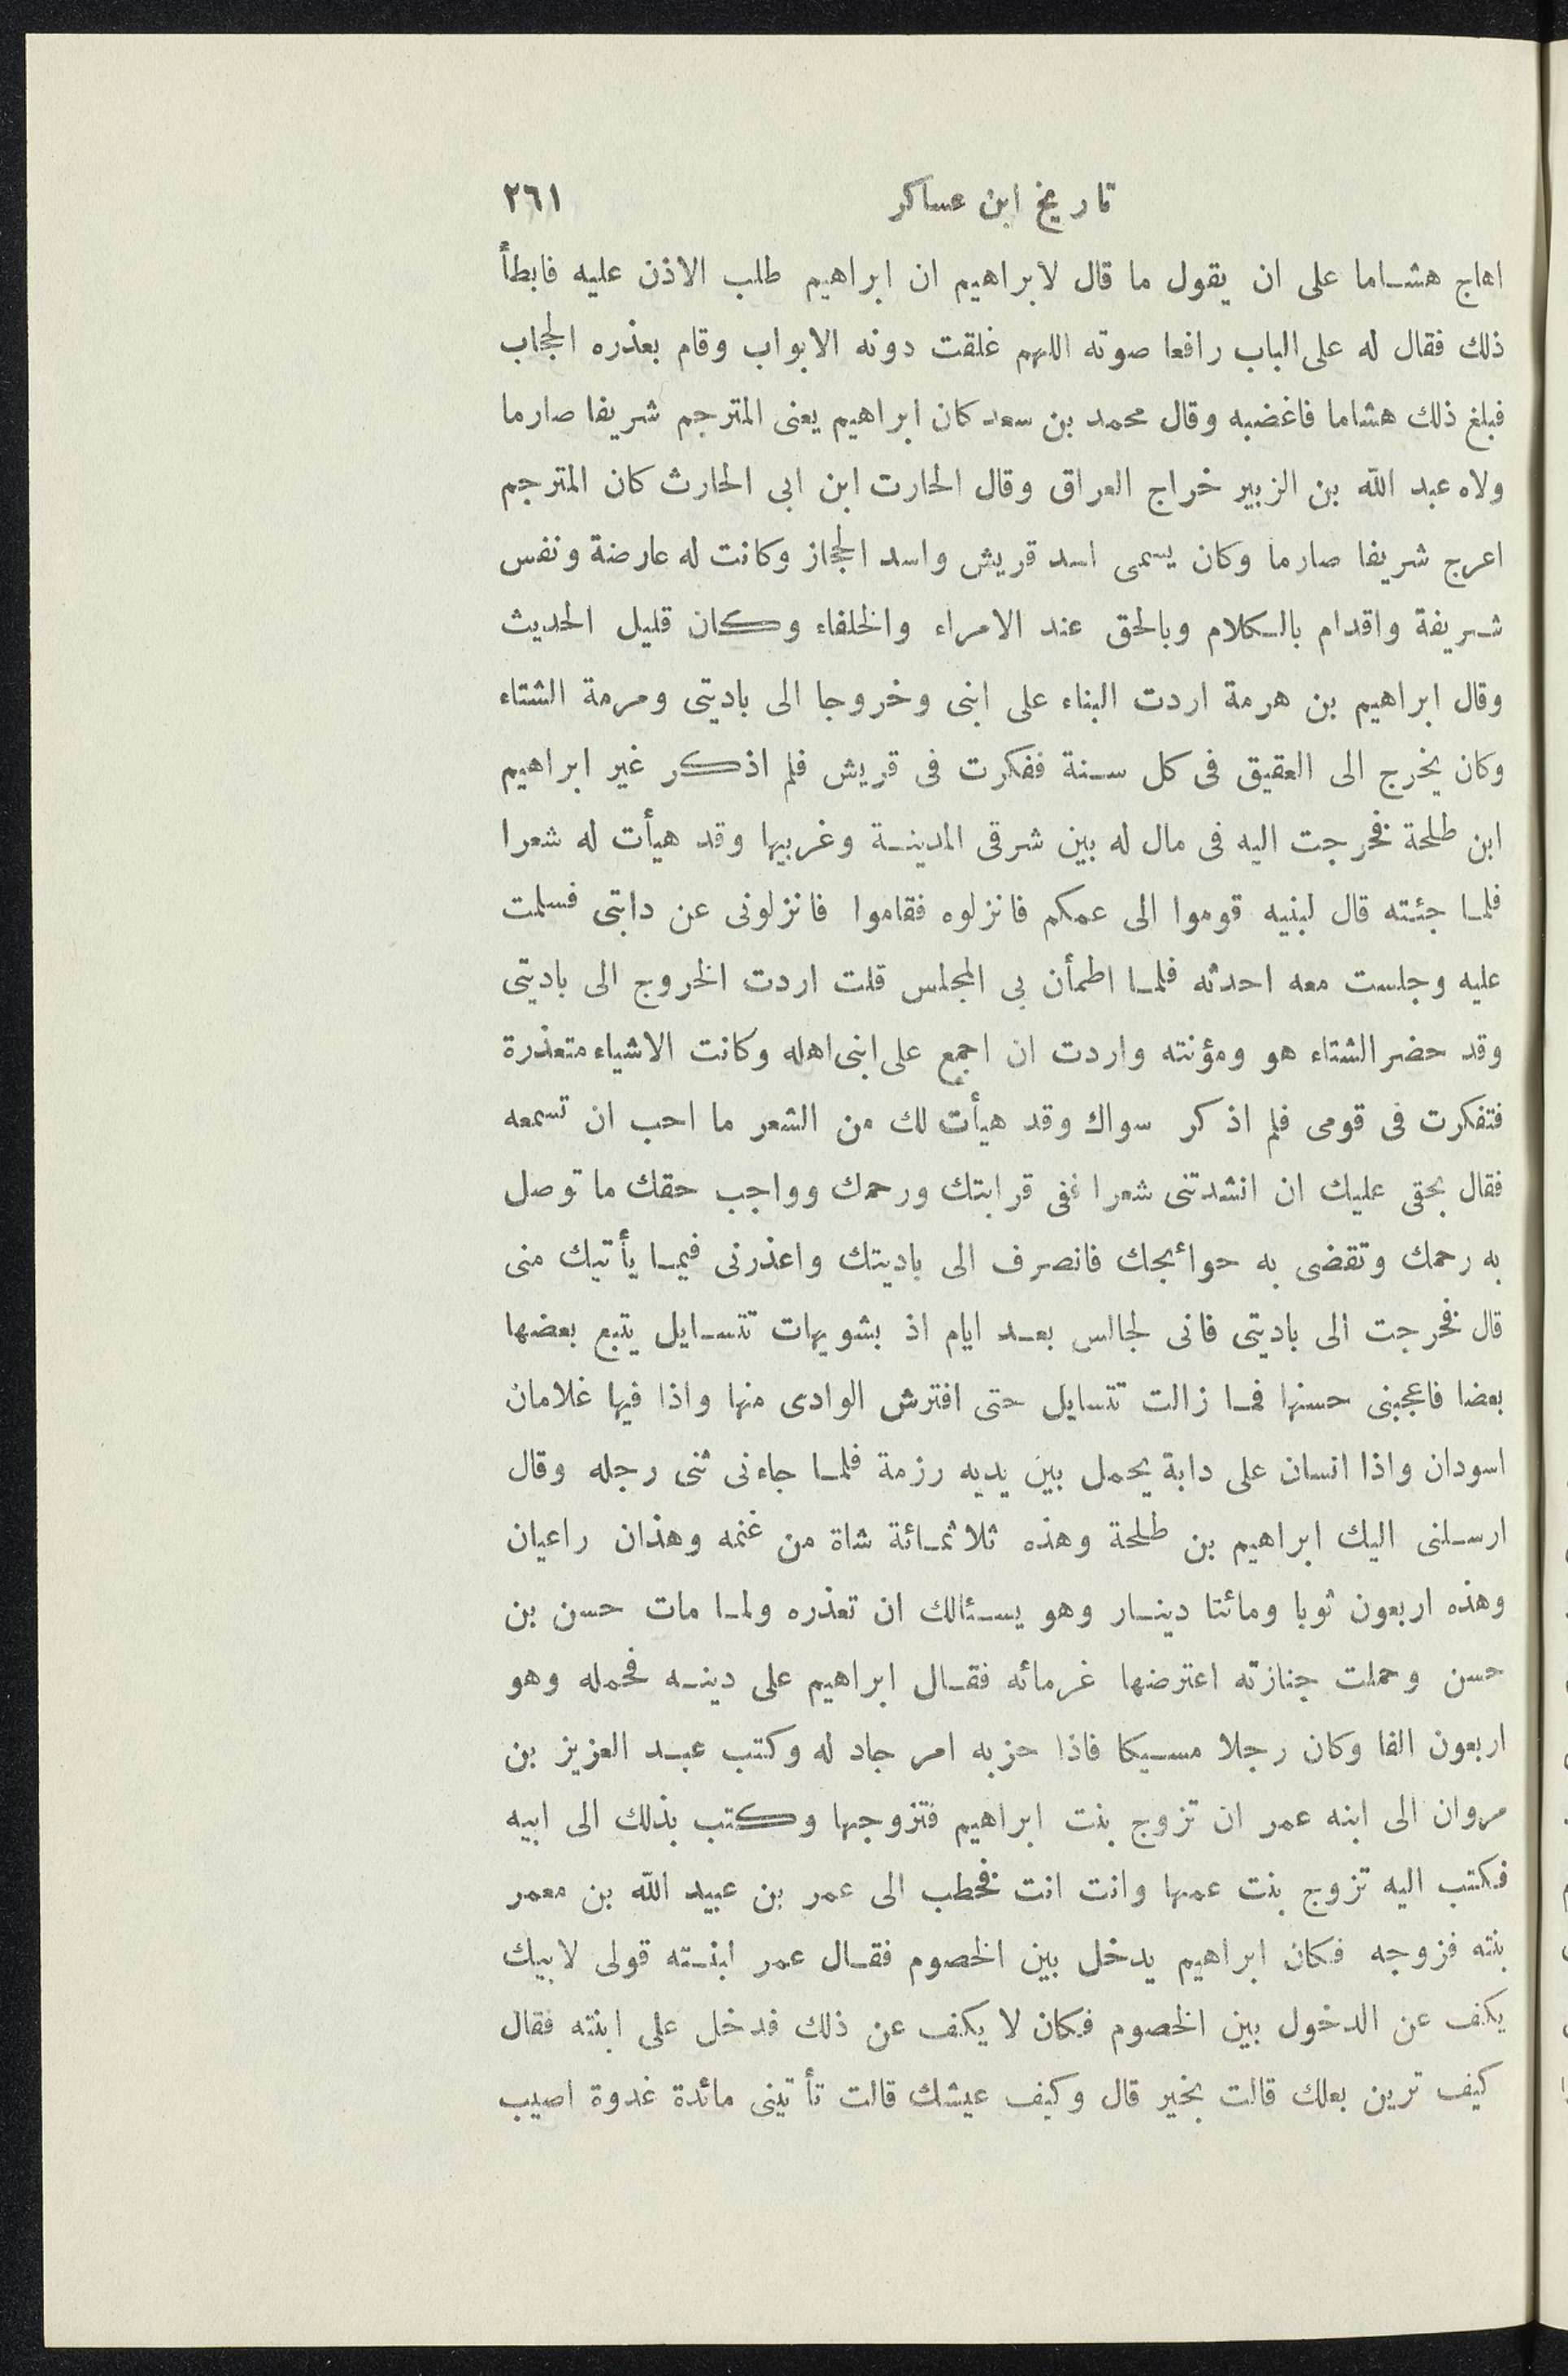 تاريخ ابن عساكر ٢٦١
اهاج هشاما على ان يقول ما قال لابراهيم ان ابراهيم طلب الاذن عليه فابطأ
ذلك فقال له على الباب رافعا صوته اللهم غلقت دونه الابواب وقام بعذره الحجاب
فبلغ ذلك هشاما فاغضبه وقال محمد بن سعد كان ابراهيم يعنى المترجم شريفا صارما
ولاه عبد الله بن الزبير خراج العراق وقال الحارت ابن ابى الحارث كان المترجم
اعرج شريفا صارما وكان يسمى اسد قريش واسد الحجاز وكانت له عارضة ونفس
شريفة واقدام بالكلام وبالحق عند الامراء والخلفاء وكان قليل الحديث
وقال ابراهيم بن هرمة اردت البناء على ابنى وخروجا الى باديتى ومرمة الشتاء
وكان يخرج الى العقيق فى كل سنة ففكرت فى قريش فلم اذكر غير ابراهيم
ابن طلحة فخرجت اليه فى مال له بين شرقى المدينة وغربيها وقد هيأت له شعرا
فلما جئته قال لبنيه قوموا الى عمكم فانزلوه فقاموا فانزلونى عن دابتى فسلمت
عليه وجلست معه احدثه فلما اطمأن بى المجلس قلت اردت الخروج الى باديتى
وقد حضر الشتاء هو ومؤنته واردت ان اجمع على ابنى اهله وكانت الاشياء متعذرة
فتفكرت فى قومى فلم اذكر سواك وقد هيأت لك من الشعر ما احب ان تسمعه
فقال بحقى عليك ان انشدتنى شعرا ففى قرابتك ورحمك وواجب حقك ما توصل
به رحمك وتقضى به حوائجك فانصرف الى باديتك واعذرنى فيما يأتيك منى
قال فخرجت الى باديتى فانى لجالس بعد ايام اذ بشويهات تتسايل يتبع بعضها
بعضا فاعجبنى حسنها فما زالت تتسايل حتى افترش الوادى منها واذا فيها غلامان
اسودان واذا انسان على دابة يحمل بين يديه رزمة فلما جاءنى ثنى رجله وقال
ارسلنى اليك ابراهيم بن طلحة وهذه ثلاثمائة شاة من غنمه وهذان راعيان
وهذه اربعون ثوبا ومائتا دينار وهو يسئالك ان تعذره ولما مات حسن بن
حسن وحملت جنازته اعترضها غرمائه فقال ابراهيم على دينه فحمله وهو
اربعون الفا وكان رجلا مسيكا فاذا حزبه امر جاد له وكتب عبد العزيز بن
مروان الى ابنه عمر ان تزوج بنت ابراهيم فتزوجها وكتب بذلك الى ابيه
فكتب اليه تزوج بنت عمها وانت انت فخطب الى عمر بن عبيد الله بن معمر
بنته فزوجه فكان ابراهيم يدخل بين الخصوم فقال عمر ابنته قولى لابيك
يكف عن الدخول بين الخصوم فكان لا يكف عن ذلك فدخل على ابنته فقال
كيف ترين بعلك قالت بخير قال وكيف عيشك قالت تأتينى مائدة غدوة اصيب